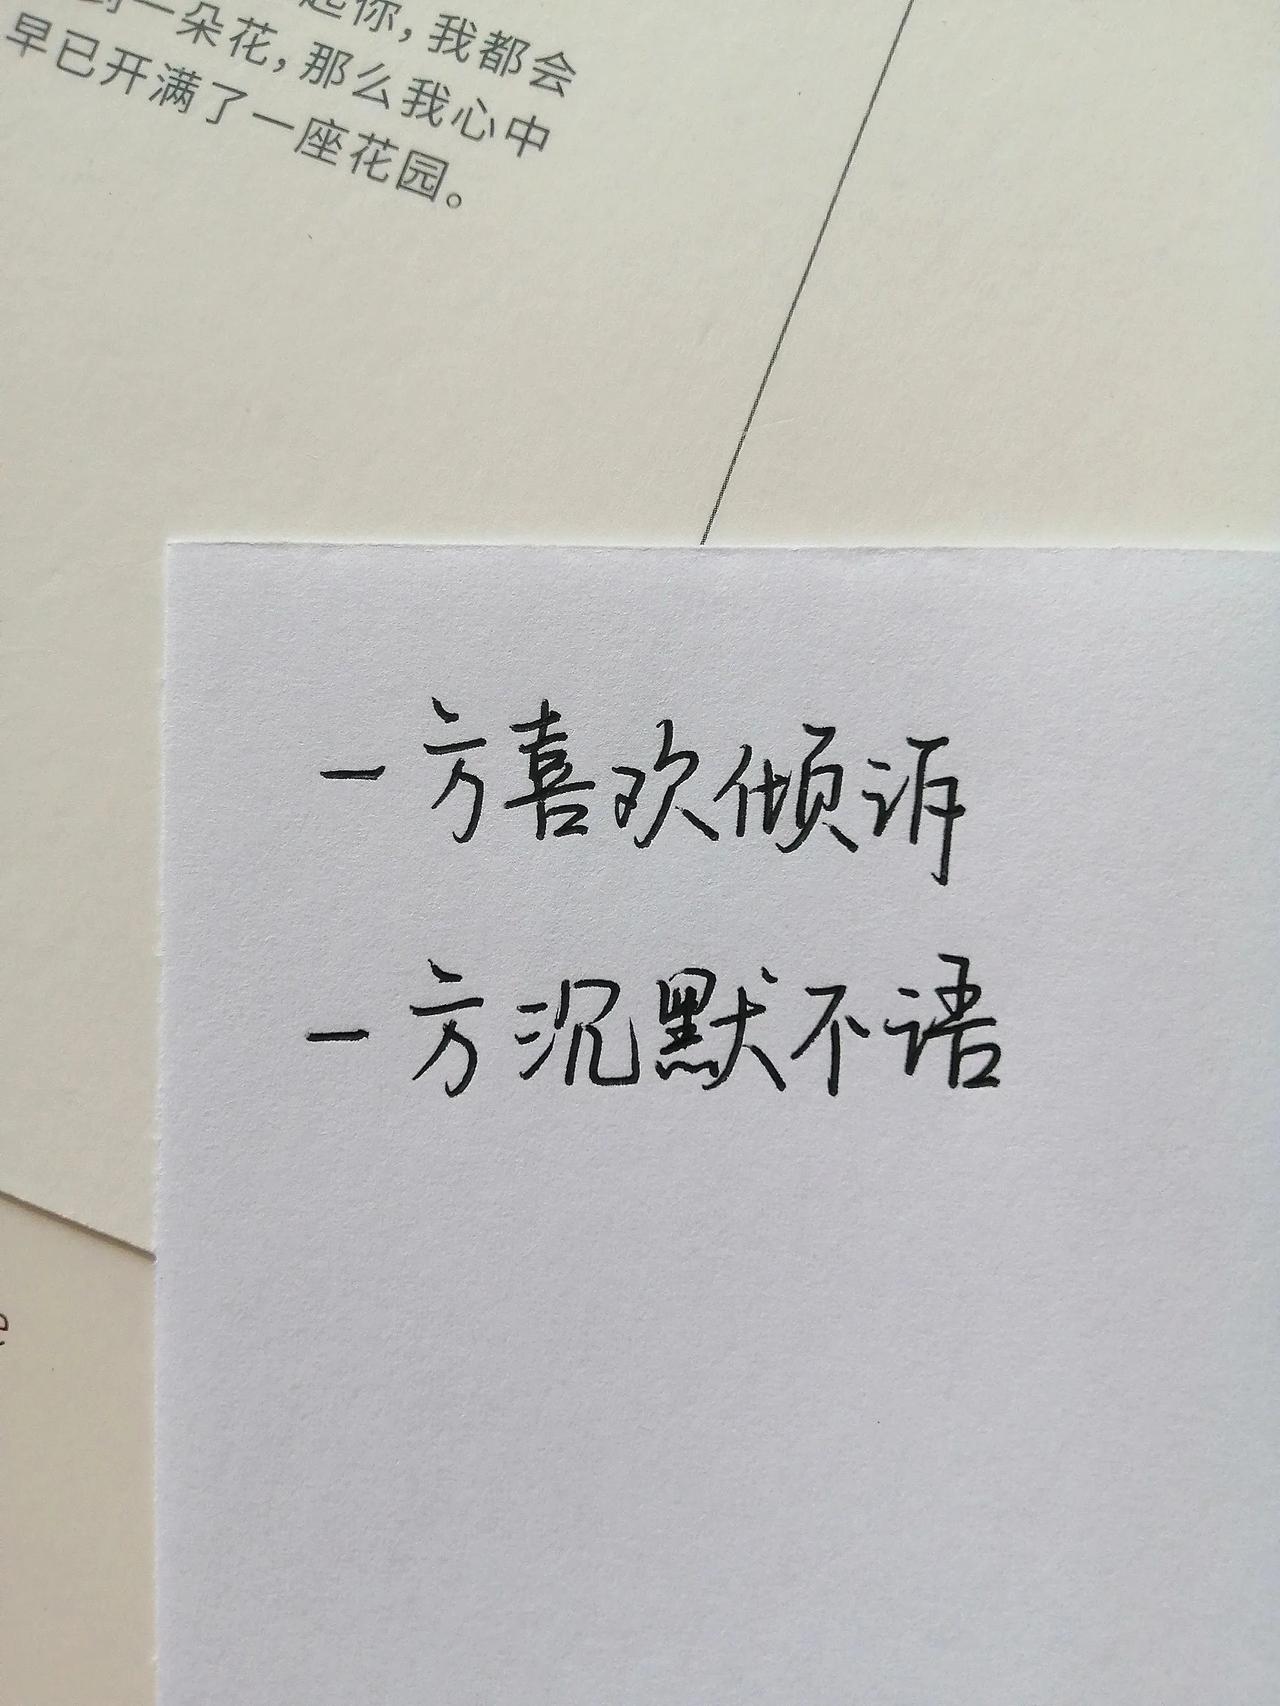 起你，我都会
到一朵花，那么我心中
早已开满了一座花园。
一方喜欢倾诉
一方沉默不语
e